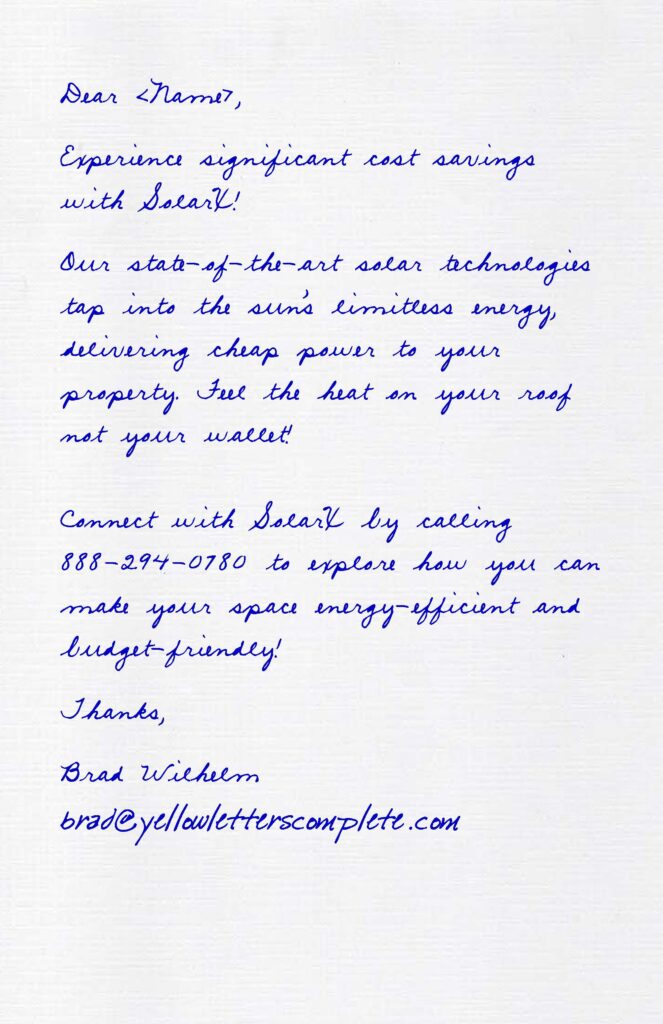 Dear <Name>,
Experience significant cost savings
with SolarX!
Our state-of-the-art solar technologies
tap into the sun's limitless energy,
delivering cheap power to your
property. Feel the heat on your roof
not your wallet!
Connect with SolarX by calling
888-294-0780 to explore how you can
make your space energy-efficient and
budget-friendly!
Thanks,
Brad Wilhelm
brad@yellowletterscomplete.com